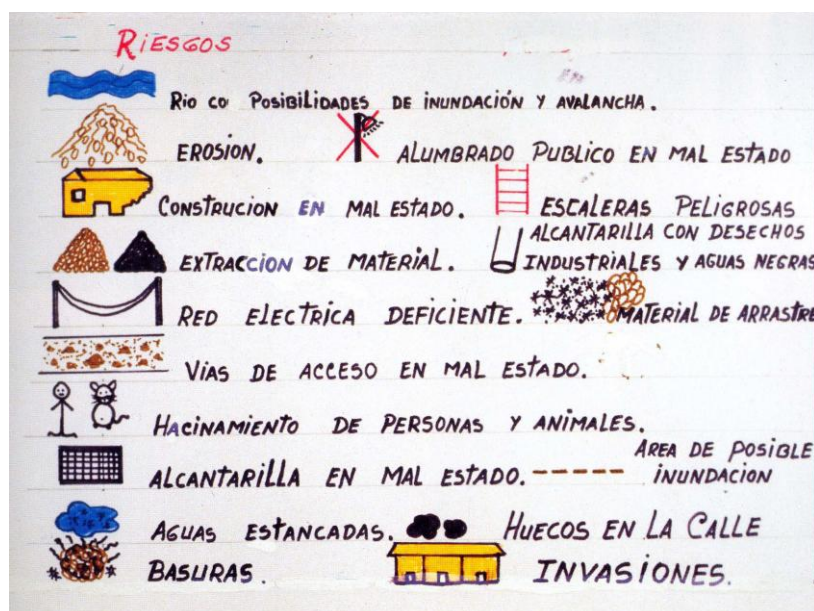 RIESGOS
RIO CO POSIBILIDADES DE INUNDACIÓN Y AVALANCHA.
EROSION.
ALUMBRADO PUBLICO EN MAL ESTADO
CONSTRUCION EN MAL ESTADO.
ESCALERAS PELIGROSAS
EXTRACCION DE MATERIAL.
ALCANTARILLA CON DESECHOS
INDUSTRIALES Y AGUAS NEGRAS
RED ELECTRICA DEFICIENTE.
MATERIAL DE ARRASTRE
VIAS DE ACCESO EN MAL ESTADO.
HACINAMIENTO DE PERSONAS Y ANIMALES.
ALCANTARILLA EN MAL ESTADO.
AREA DE POSIBLE
INUNDACION
AGUAS ESTANCADAS.
HUECOS EN LA CALLE
BASURAS.
INVASIONES.